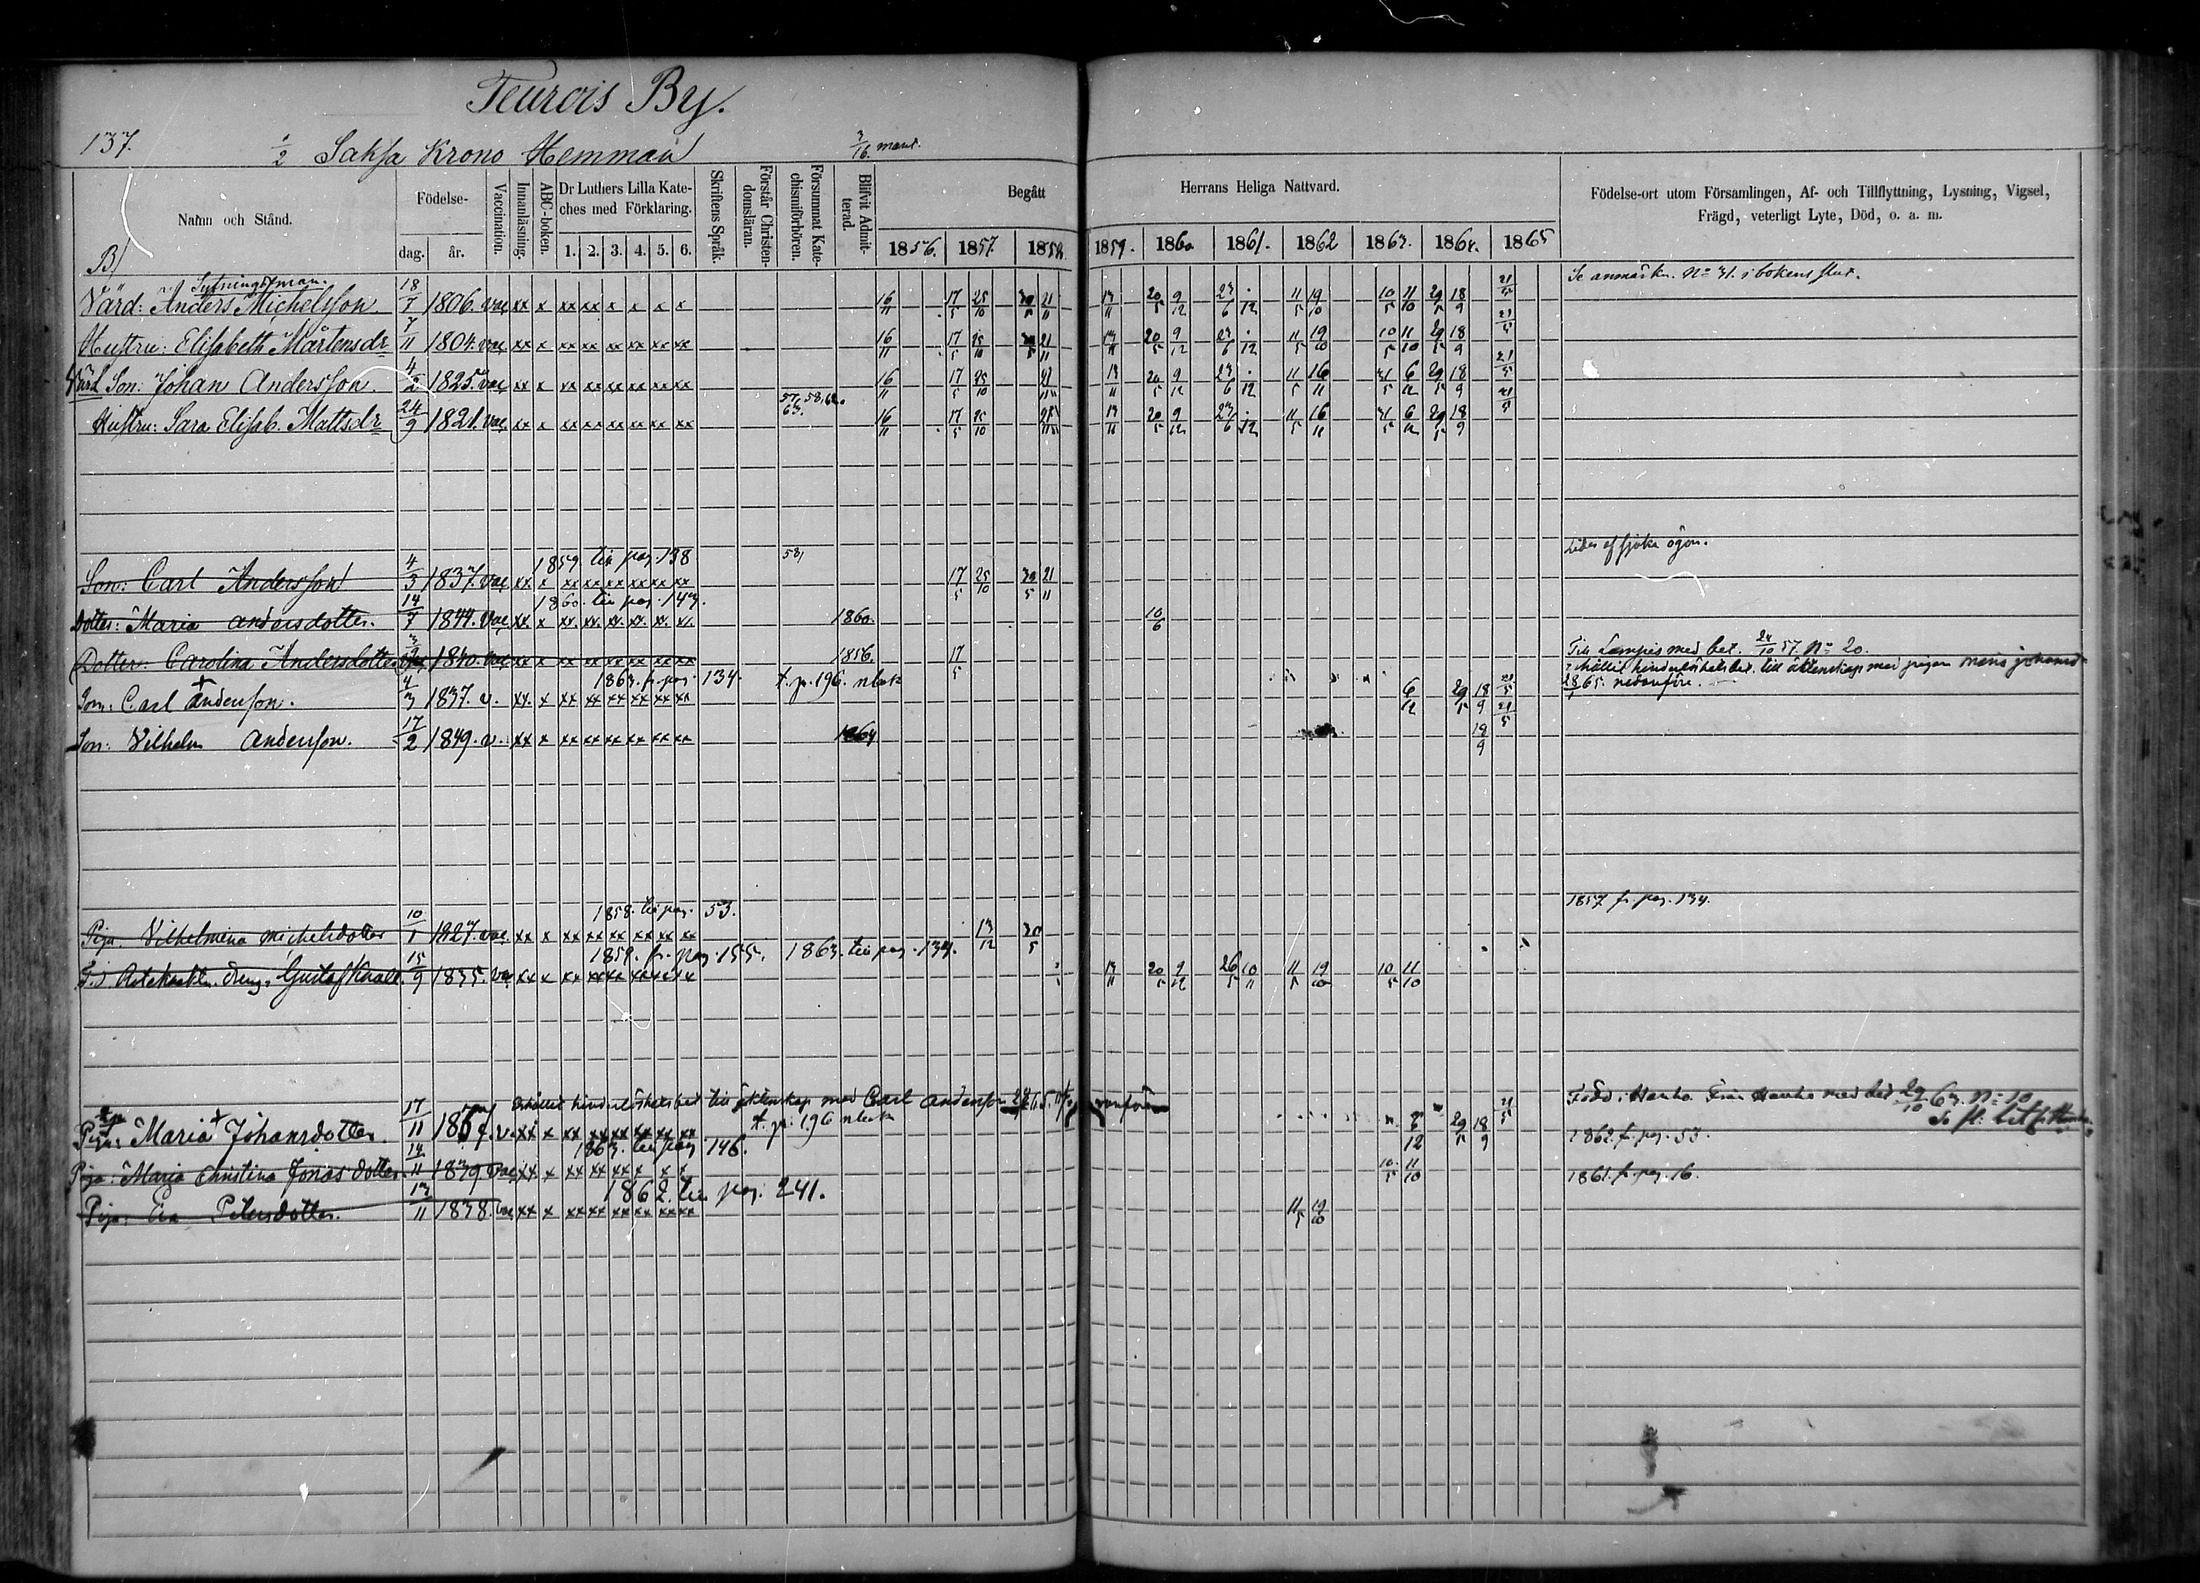 Teurois By.
137. 1/2 Saksa Krono Hemman 3/16 mant.
Namn och Stånd. Födelse- Vaccination. Innanläsning. ABC-boken. Dr Luthers Lilla Kate-ches med Förklaring. Skriftens Språk. Förstår Christen-domsläran. Försummat Kate-chismiförhören. Blifvit Admit-terad. Begått Herrans Heliga Nattvard. Födelse-ort utom Församlingen, Af- och Tillflyttning, Lysning, Vigsel, Frägd, veterligt Lyte, Död, o. a. m.
dag. år. 1. 2. 3. 4. 5. 6. 1856. 1857. 1858. 1859. 1860 1861. 1862 1863. 1864. 1865
B)
Sytningsman. Se anmärkn. No 31. i bokens slut.
Värd: Anders Michelsson 18/7 1806. vac xx x xx xx x x x x 16/11 17/5 25/10 30/5 21/11 13/11 20/5 9/12 23/6 12 11/5 19/10 10/5 11/10 29/5 18/9 21/5
Hustru: Elisabeth Mårtensdr 7/11 1804. vac xx x xx xx xx xx xx xx 16/11 17/5 25/10 30/5 21/11 13/11 20/5 9/12 23/6 12 11/5 19/10 10/5 11/10 29/5 18/9 21/5
Värd Son: Johan Andersson 4/2 1825. vac xx x xx xx xx xx xx xx 16/11 17/5 25/10 21/11 13/11 20/5 9/12 23/6 12 11/5 16/11 31/5 6/12 29/5 18/9 21/5
57, 58, 62. 63.
Hustru: Sara Elisab. Mattsdr 24/9 1821. vac xx x xx xx xx xx xx xx 16/11 17/5 25/10 13/11 20/5 9/12 23/6 12 11/5 16/11 31/5 6/12 29/5 18/9 21/5
1859 till pag. 138 58, Lider af sjuka ögon.
Son: Carl Andersson 4/3 1837. vac xx x xx xx xx xx xx xx 17/5 25/10 30/5 21/11
1860. till pag. 143.
Dotter: Maria Andersdotter. 14/7 1844. vac xx. x xx. xx. xx. xx. xx. xx. 1860. 10/6
Dotter: Carolina Andersdotter 1840. vac xx x xx xx xx xx xx xx 1856. 17/5 Till Lampis med bet. 24/10 57. No 20.
1863. fr. pag. 134. t. p. 196. n. bok Erhållit hinderlöshetsbet. till äktenskap med pigan Maria Johansd
Son: Carl Andersson. 4/3 1837. v. xx. x xx xx xx xx xx xx 6/12 29/5 18/9 21/5 65. nedanföre.
Son: Vilhelm Andersson. 17/2 1849. v. xx x xx xx xx xx xx xx 1864 18/9 21/5
1858. till pag. 53. 1857 fr. pag. 134.
Piga Vilhelmina Michelsdotter 10/1 1827. vac xx x xx xx xx xx xx xx 13/12 30/5
1859. fr. pag. 155. 1863. till pag. 134.
Gustaf 15/9 1835. vac xx x xx xx xx xx xx xx 13/11 20/5 9/12 26/5 10/11 11/5 19/10 10/5 11/10
Erhållit hinderlöshetsbet till äktenskap med Carl Andersson Född i Hauho. Från Hauho med bet 29/10 63. No 10
Piga: Maria Johansdotter 17/11 t. p. 196 n. bok 6/12 29/5 18/9 21/5
1863. till pag 146. 1862. fr. pag. 53.
Piga: Maria Christina Jonasdotter 1839 vac xx x xx xx xx x x x 10/5 11/10
1862. till pag. 241. 1861. fr. pag. 16.
Piga: Eva Petersdotter. 13/11 1838. vac xx x xx xx xx xx xx xx 11/5 19/10